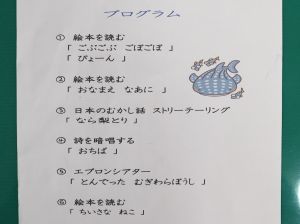 プログラム
① 絵本を読む
「 ごぶごぶ ごぼごぼ 」
「 ぴょーん 」
② 絵本を読む
「 おなまえ なあに 」
③ 日本のむかし話 ストリーテーリング
「 なら梨とり 」
④ 詩を暗唱する
「 おちば 」
⑤ エプロンシアター
「 とんでった むぎわらぼうし 」
⑥ 絵本を読む
「 ちいさな ねこ 」